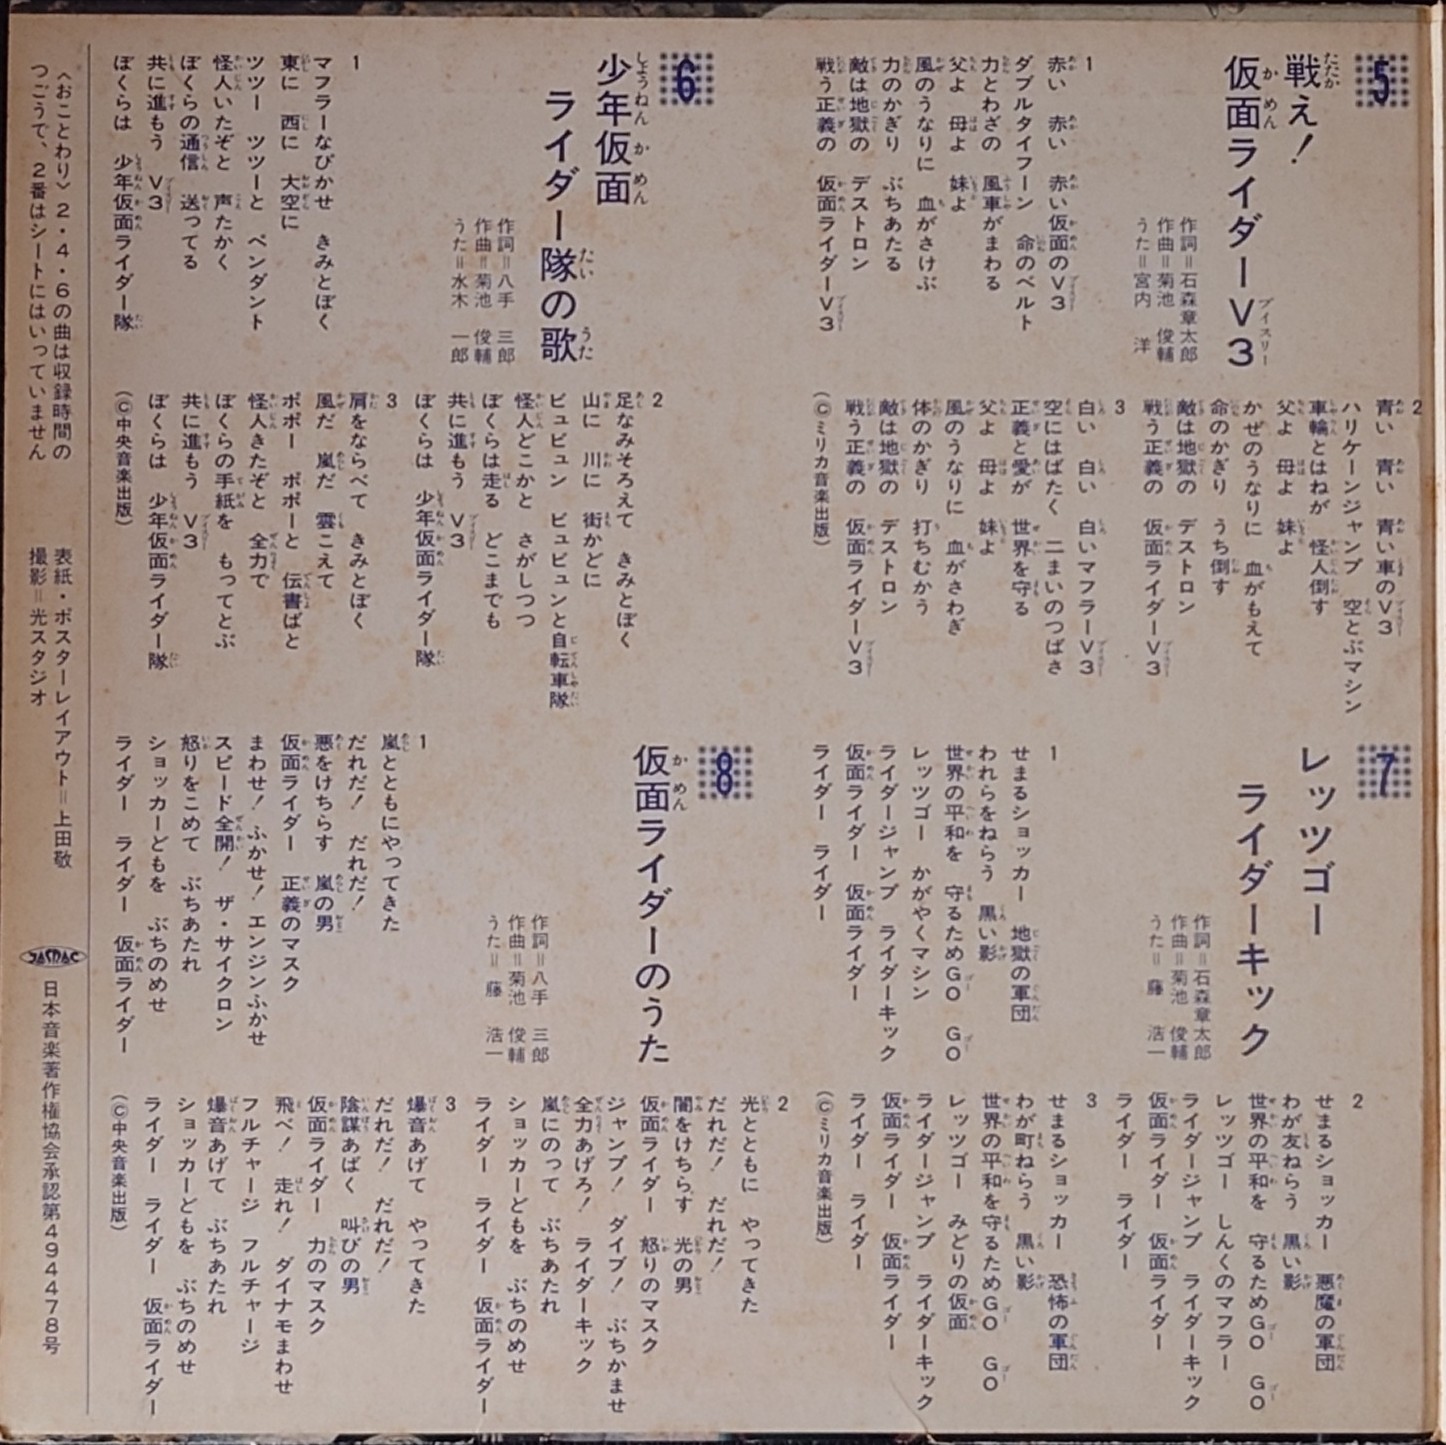 5
戦え！
仮面ライダーV3
作詞＝石森章太郎
作曲＝菊池 俊輔
うた＝宮内 洋
1
赤い 赤い 赤い仮面のV3
ダブルタイフーン 命のベルト
力とわざの 風車がまわる
父よ 母よ 妹よ
風のうなりに 血がさけぶ
力のかぎり ぶちあたる
敵は地獄の デストロン
戦う正義の 仮面ライダーV3
2
青い 青い 青い車のV3
ハリケーンジャンプ 空とぶマシン
車輪とはねが 怪人倒す
父よ 母よ 妹よ
かぜのうなりに 血がもえて
命のかぎり うち倒す
敵は地獄の デストロン
戦う正義の 仮面ライダーV3
3
白い 白い 白いマフラーV3
空にはばたく 二まいのつばさ
正義と愛が 世界を守る
父よ 母よ 妹よ
風のうなりに 血がさわぎ
体のかぎり 打ちむかう
敵は地獄の デストロン
戦う正義の 仮面ライダーV3
（Ⓒミリカ音楽出版）
6
少年仮面
ライダー隊の歌
作詞＝八手 三郎
作曲＝菊池 俊輔
うた＝水木 一郎
1
マフラーなびかせ きみとぼく
東に 西に 大空に
ツツー ツツーと ペンダント
怪人いたぞと 声たかく
ぼくらの通信 送ってる
共に進もう V3
ぼくらは 少年仮面ライダー隊
2
足なみそろえて きみとぼく
山に 川に 街かどに
ビュビュン ビュビュンと自転車隊
怪人どこかと さがしつつ
ぼくらは走る どこまでも
共に進もう V3
ぼくらは 少年仮面ライダー隊
3
肩をならべて きみとぼく
風だ 嵐だ 雲こえて
ポポー ポポーと 伝書ばと
怪人きたぞと 全力で
ぼくらの手紙を もってとぶ
共に進もう V3
ぼくらは 少年仮面ライダー隊
（Ⓒ中央音楽出版）
7
レッツゴー
ライダーキック
作詞＝石森章太郎
作曲＝菊池 俊輔
うた＝藤 浩一
1
せまるショッカー 地獄の軍団
われらをねらう 黒い影
世界の平和を 守るためGO GO
レッツゴー かがやくマシン
ライダージャンプ ライダーキック
仮面ライダー 仮面ライダー
ライダー ライダー
2
せまるショッカー 悪魔の軍団
わが友ねらう 黒い影
世界の平和を 守るためGO GO
レッツゴー しんくのマフラー
ライダージャンプ ライダーキック
仮面ライダー 仮面ライダー
ライダー ライダー
3
せまるショッカー 恐怖の軍団
わが町ねらう 黒い影
世界の平和を守るためGO GO
レッツゴー みどりの仮面
ライダージャンプ ライダーキック
仮面ライダー 仮面ライダー
ライダー ライダー
（Ⓒミリカ音楽出版）
8
仮面ライダーのうた
作詞＝八手 三郎
作曲＝菊池 俊輔
うた＝藤 浩一
1
嵐とともにやってきた
だれだ！ だれだ！
悪をけちらす 嵐の男
仮面ライダー 正義のマスク
まわせ！ ふかせ！ エンジンふかせ
スピード全開！ ザ・サイクロン
怒りをこめて ぶちあたれ
ショッカーどもを ぶちのめせ
ライダー ライダー 仮面ライダー
2
光とともに やってきた
だれだ！ だれだ！
闇をけちらす 光の男
仮面ライダー 怒りのマスク
ジャンプ！ ダイブ！ ぶちかませ
全力あげろ！ ライダーキック
嵐にのって ぶちあたれ
ショッカーどもを ぶちのめせ
ライダー ライダー 仮面ライダー
3
爆音あげて やってきた
だれだ！ だれだ！
陰謀あばく 叫びの男
仮面ライダー 力のマスク
飛べ！ 走れ！ ダイナモまわせ
フルチャージ フルチャージ
爆音あげて ぶちあたれ
ショッカーどもを ぶちのめせ
ライダー ライダー 仮面ライダー
（Ⓒ中央音楽出版）
〈おことわり〉2・4・6の曲は収録時間の
つごうで、2番はシートにはいっていません
表紙・ポスターレイアウト＝上田敬
撮影＝光スタジオ
JASRAC
日本音楽著作権協会承認第494478号